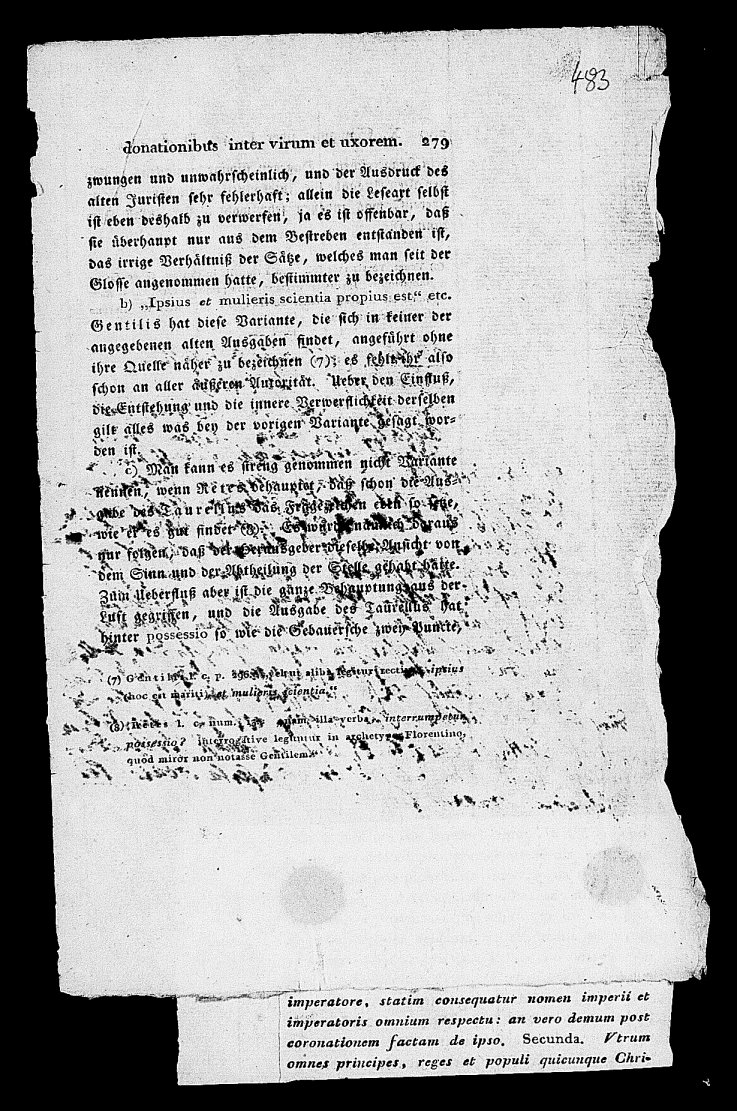 483
donationibus inter virum et uxorem. 279
zwungen und unwahrscheinlich, und der Ausdruck des
alten Juristen sehr fehlerhaft; allein die Leseart selbst
ist eben deshalb zu verwerfen, ja es ist offenbar, daß
sie überhaupt nur aus dem Bestreben entstanden ist,
das irrige Verhältniß der Sätze, welches man seit der
Glosse angenommen hatte, bestimmter zu bezeichnen.
b) „Ipsius et mulieris scientia propius est“ etc.
Gentilis hat diese Variante, die sich in keiner der
angegebenen alten Ausgaben findet, angeführt ohne
ihre Quelle näher zu bezeichnen (7); es fehlt ihr also
schon an aller äußeren Autorität. Ueber den Einfluß,
die Entstehung und die innere Verwerflichkeit derselben
gilt alles was bey der vorigen Variante gesagt wor-
den ist.
c) Man kann es streng genommen nicht Variante
nennen, wenn Retes behauptet, daß schon die Aus-
gabe des Taurellus das Fragezeichen eben so setze,
wie er es gut findet (8). Es würde nämlich daraus
nur folgen, daß der Herausgeber dieselbe Ansicht von
dem Sinn und der Abtheilung der Stelle gehabt hätte.
Zum Ueberfluß aber ist die ganze Behauptung aus der
Luft gegriffen, und die Ausgabe des Taurellus hat
hinter possessio so wie die Gebauersche zwey Puncte,
(7) Gentilis l. c. p. vel ut alibi legitur rectius ipsius
(hoc est mariti) et mulieris scientia.“
(8) Retes l. c. num. quam illa verba interrumpetur
possessio? interrogative leguntur in archetypo Florentino,
quod miror non notasse Gentilem.“
imperatore, statim consequatur nomen imperii et
imperatoris omnium respectu: an vero demum post
coronationem factam de ipso. Secunda. Vtrum
omnes principes, reges et populi quicunque Chri-